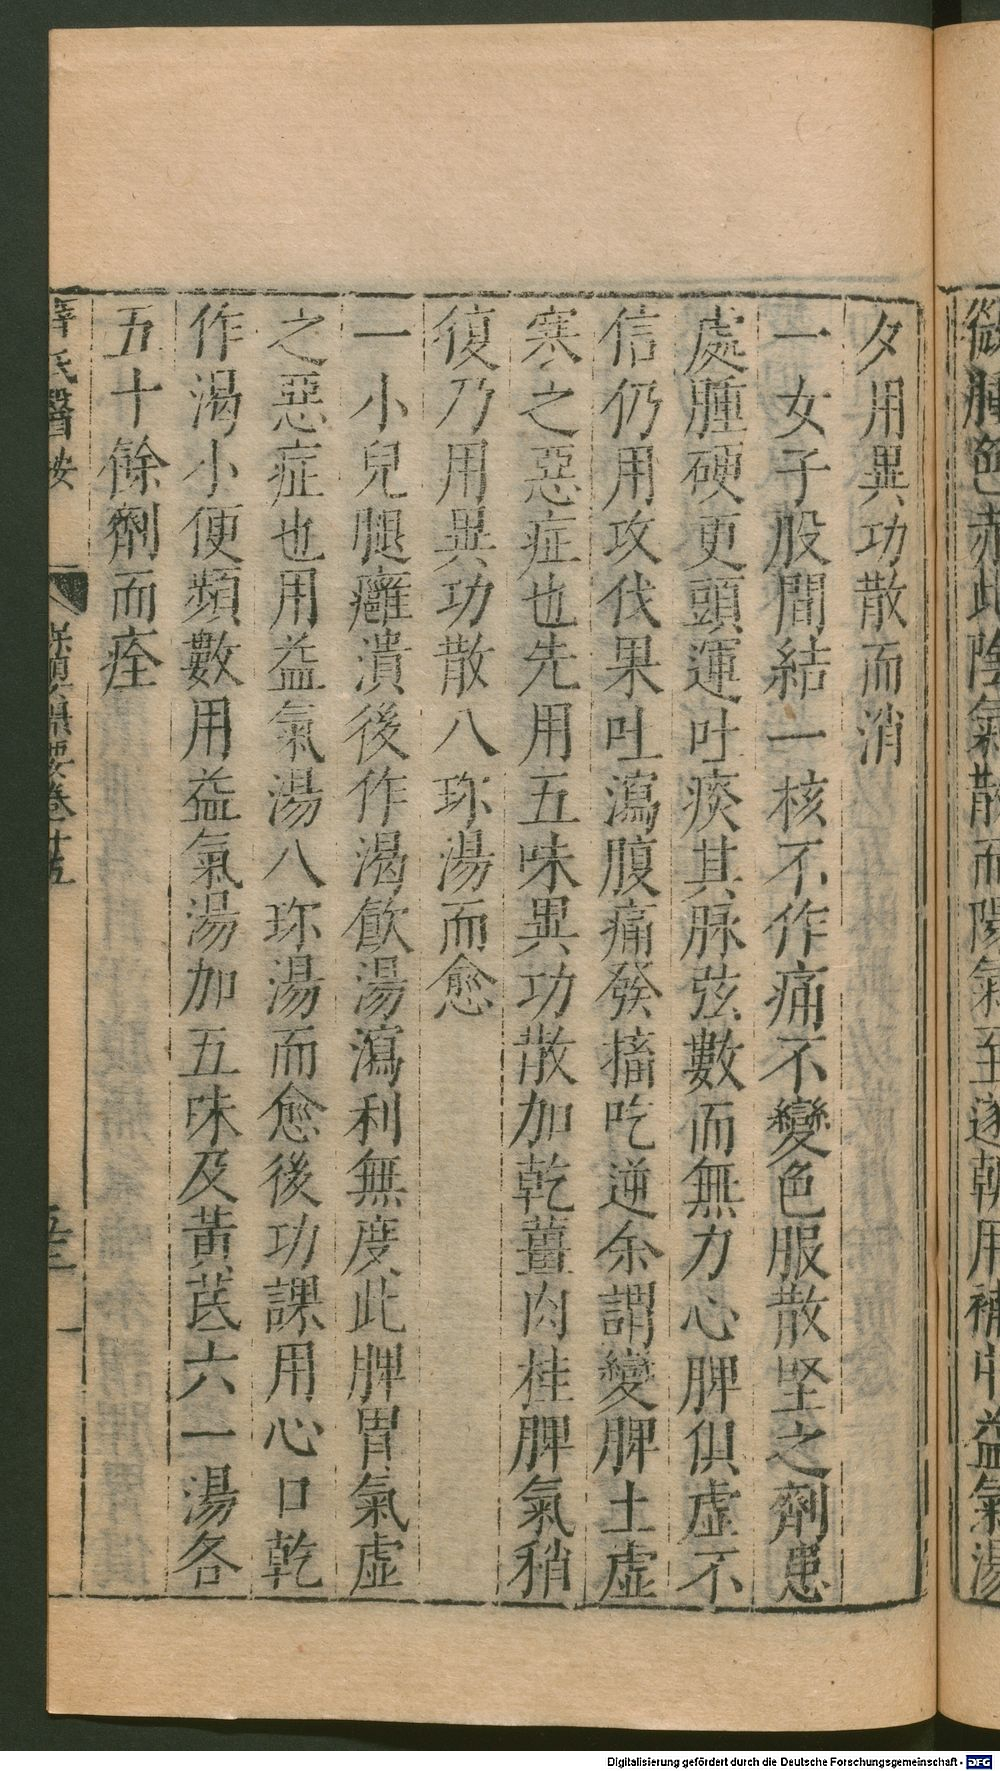 微腫色赤此陰氣散而陽氣至遂朝用補中益氣湯
夕用異功散而消
一女子股間結一核不作痛不變色服散坚之劑患
處腫硬更頭運吐痰其脉弦數而無力心脾俱虛不
信仍用攻伐果吐瀉腹痛發搐吃逆余謂變脾土虛
寒之惡症也先用五味異功散加乾薑肉桂脾氣稍
復乃用異功散八珎湯而愈
一小兒腿癰潰後作渴飮湯瀉利無度此脾胃氣虛
之惡症也用益氣湯八珎湯而愈後功課用心口乾
作渴小便頻數用益氣湯加五味及黃茋六一湯各
五十餘劑而痊
薛氏醫按
卷十五
五三
Digitalisierung gefördert durch die Deutsche Forschungsgemeinschaft - DFG